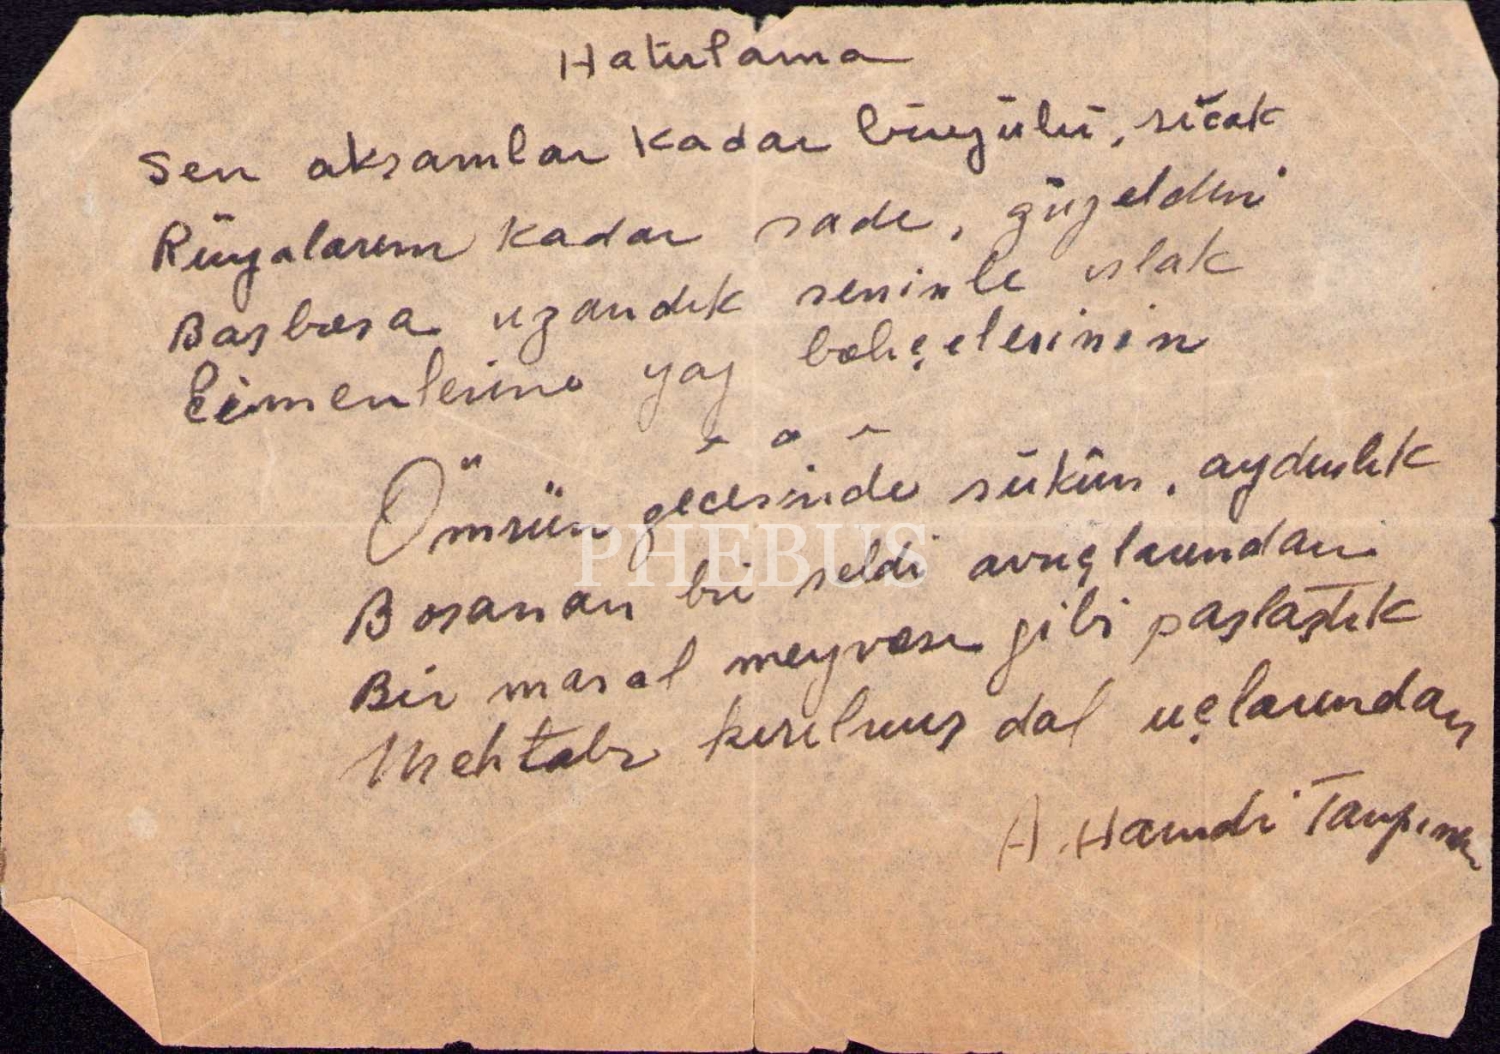 Hatırlama
Sen akşamlar kadar büyülü, sıcak
Rüyalarım kadar sade, güzeldin
Başbaşa uzandık seninle ıslak
Çimenlerine yaz bahçelerinin
Ömrün gecesinde sükûn, aydınlık
Boşanan bir seldi avuçlarından
Bir masal meyvası gibi paylaştık
Mehtabı kırılmış dal uçlarından
A. Hamdi Tanpınar
PHEBUS